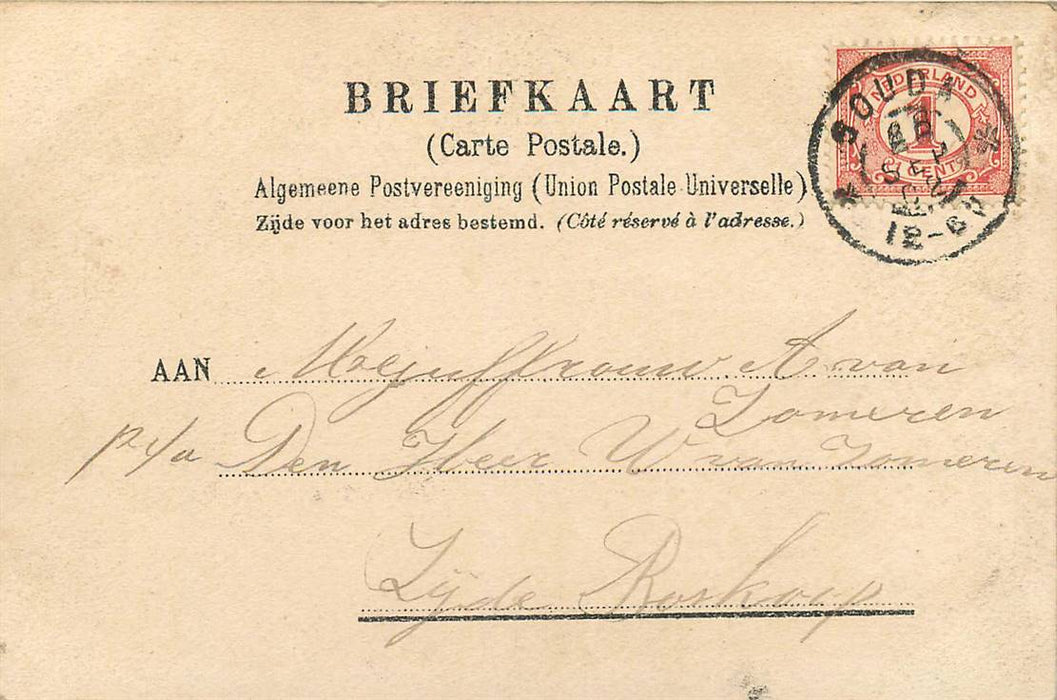 BRIEFKAART
(Carte Postale.)
Algemeene Postvereeniging (Union Postale Universelle)
Zijde voor het adres bestemd. (Côté réservé à l'adresse.)
NEDERLAND
1
CENT
GOUDA
SEP
12-6N
AAN Mejuffrouw A van
Zomeren
p/a Den Heer W van Zomeren
Zijde Boskoop